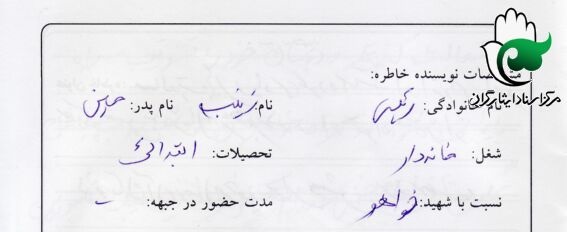 مرکز اسناد ایثارگران
مشخصات نویسنده خاطره:
نام خانوادگی: رنگین نام: زینب نام پدر: حسین
شغل: خانه‌دار تحصیلات: ابتدائی
نسبت با شهید: خواهر مدت حضور در جبهه: -